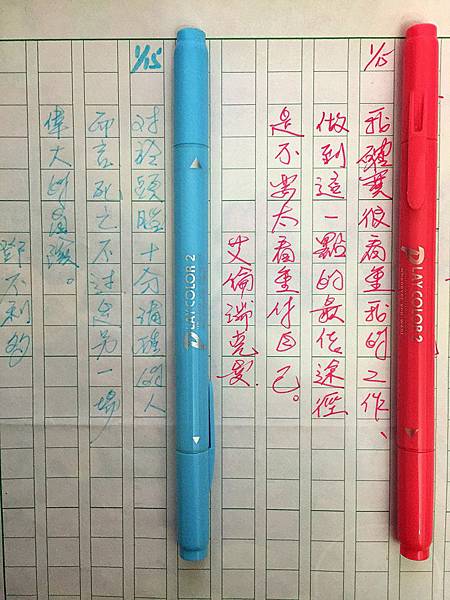 1/15
我確實很看重我的工作、
做到這一點的最佳途徑
是不要太看重自己。
艾倫瑞克曼
PLAY COLOR 2
PLAY COLOR 2
1/15
對於頭腦十分清醒的人
而言死亡不過是另一場
偉大的冒險。
鄧不利多